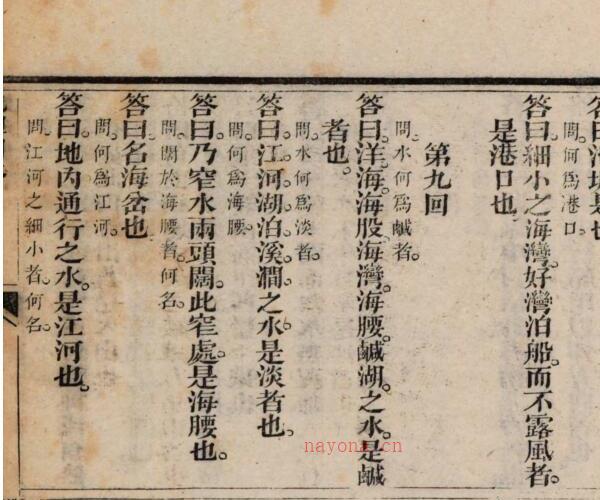 問何爲港口
答曰。細小之海灣。好灣泊船。而不露風者。
是港口也。
第九回
問水何爲鹹者。
答曰。洋海。海股。海灣。海腰。鹹湖。之水。是鹹
者也。
問水何爲淡者。
答曰。江河湖泊溪澗。之水。是淡者也。
問何爲海腰。
答曰。乃窄水兩頭闊。此窄處。是海腰也。
問闊於海腰者。何名。
答曰。名海岔也
問何爲江河。
答曰。地內通行之水。是江河也。
問江河之細小者。何名。
nayona.cn